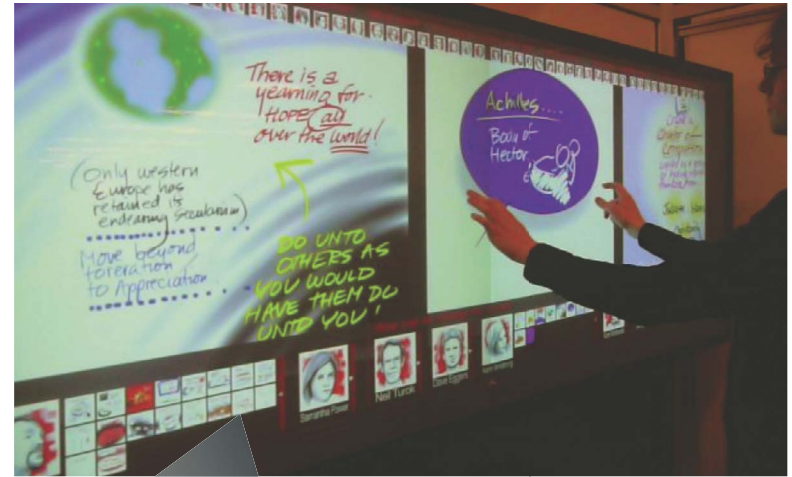 There is a
yearning for
HOPE all
over the world!
(Only western
Europe has
retained its
endearing Secularism)
Move beyond
toleration
to Appreciation
DO UNTO
OTHERS AS
YOU WOULD
HAVE THEM DO
UNTO YOU!
Achilles....
Body of
Hector
Create a
Charter of
Compassion
Samantha Power
Neil Turok
Dave Eggers
Karen Armstrong